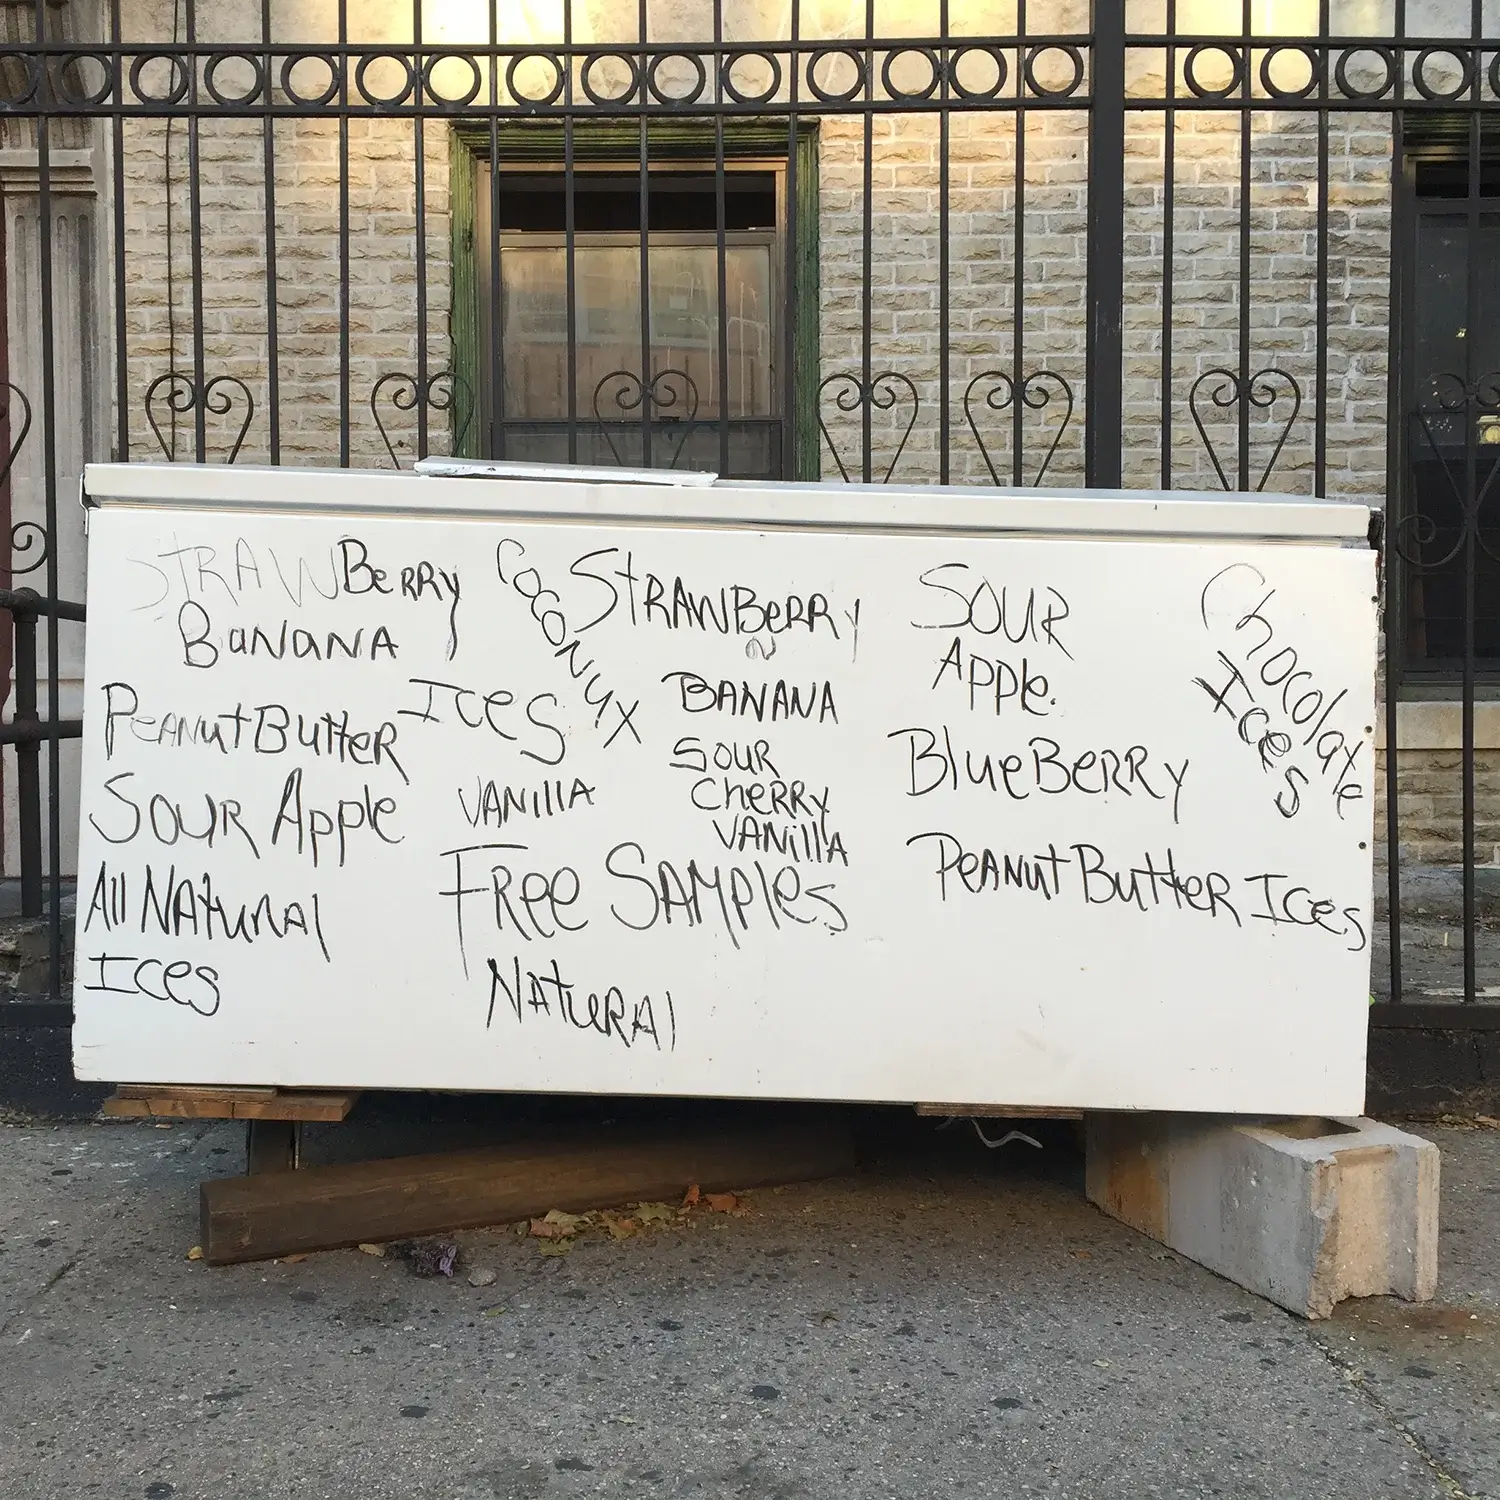 STRAWBeRRy
BaNaNA
PeANutButteR
SOUR Apple
All NAturAl
Ices
Ices
VANillA
FRee SAMPles
NAtuRAl
COCONUX
StRAWBeRRy
N
BANANA
SOUR
CheRRy
VANillA
SOUR
Apple.
BlueBeRRy
PeANut ButteR Ices
Chocolate
Ices